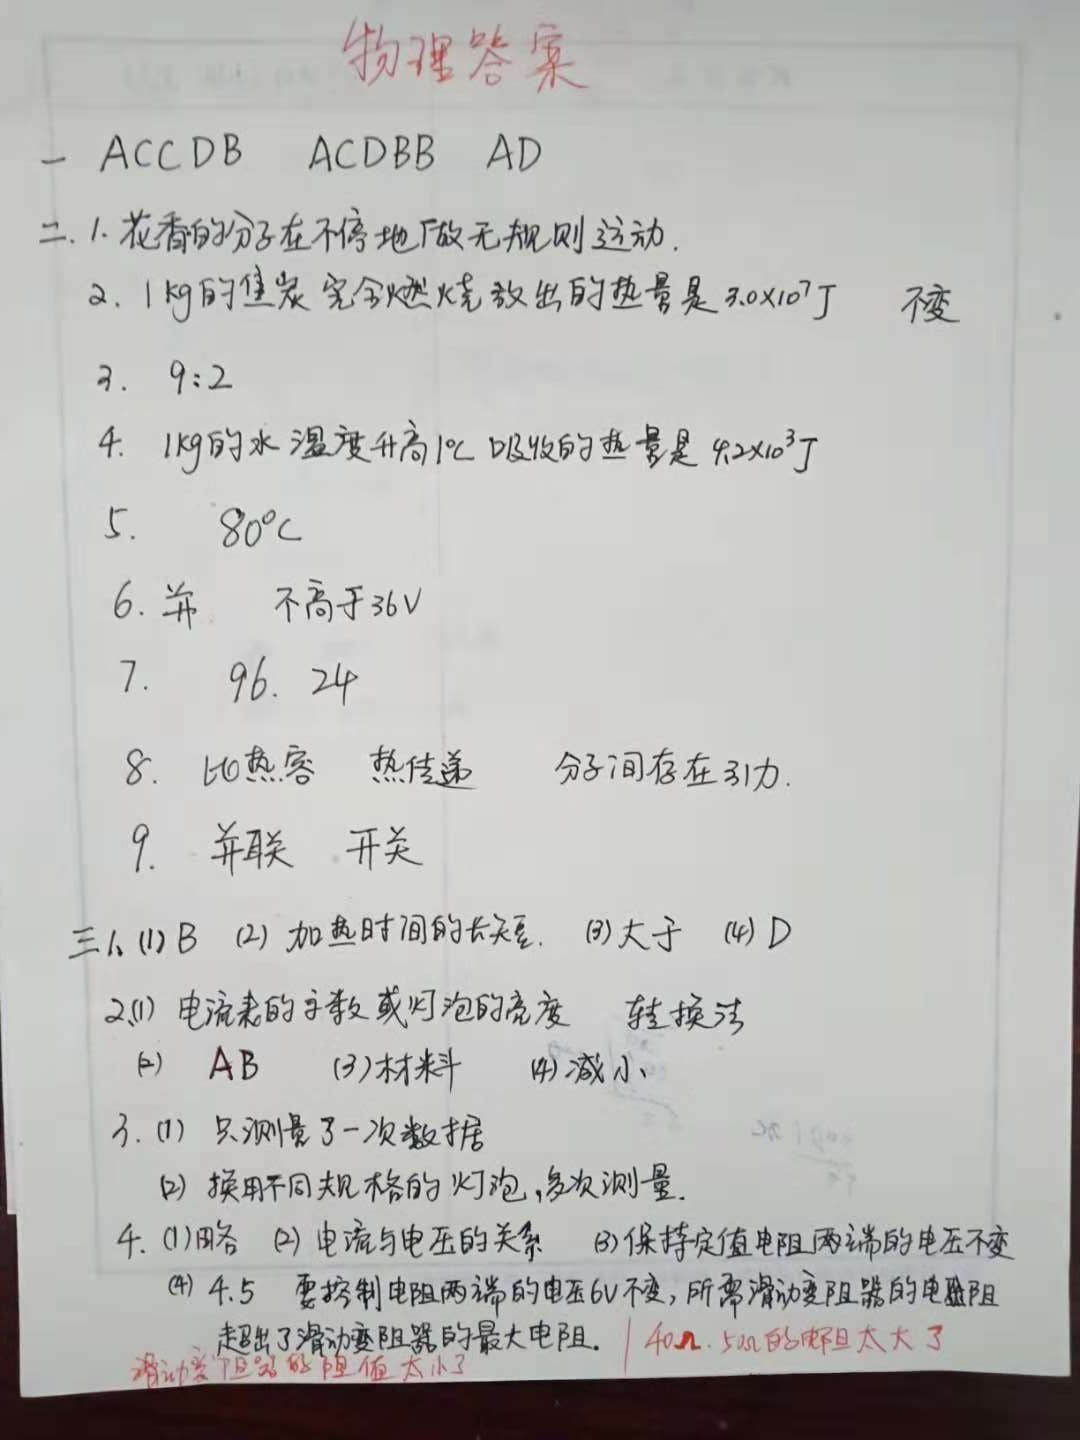 物理答案
一 ACCDB ACDBB AD
二. 1. 花香的分子在不停地做无规则运动.
2. 1kg的焦炭完全燃烧放出的热量是3.0×10⁷J 不变
3. 9:2
4. 1kg的水温度升高1℃吸收的热量是4.2×10³J
5. 80℃
6. 并 不高于36V
7. 96. 24
8. 比热容 热传递 分子间存在引力.
9. 并联 开关
三 1、(1) B (2) 加热时间的长短. (3) 大于 (4) D
2、(1) 电流表的示数或灯泡的亮度 转换法
(2) AB (3) 材料 (4) 减小
3. (1) 只测量了一次数据
(2) 换用不同规格的灯泡,多次测量.
4. (1) 略 (2) 电流与电压的关系 (3) 保持定值电阻两端的电压不变
(4) 4.5 要控制电阻两端的电压6V不变,所需滑动变阻器的电阻
超出了滑动变阻器的最大电阻. | 40Ω.50Ω的电阻太大了
滑动变阻器的阻值太小了